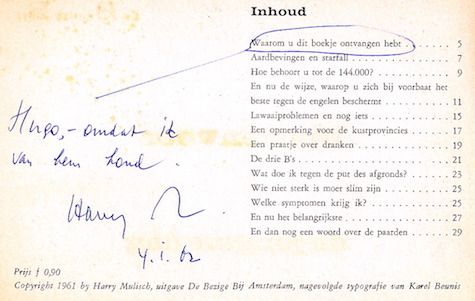 Inhoud
Waarom u dit boekje ontvangen hebt . . . . . . 5
Aardbevingen en starfall . . . . . . . . 7
Hoe behoort u tot de 144.000? . . . . . . . 9
En nu de wijze, waarop u zich bij voorbaat het
beste tegen de engelen beschermt . . . . . 11
Lawaaiproblemen en nog iets . . . . . . . 15
Een opmerking voor de kustprovincies . . . . 17
Een praatje over dranken . . . . . . . . 19
De drie B's . . . . . . . . . . . . 21
Wat doe ik tegen de put des afgronds? . . . . 23
Wie niet sterk is moet slim zijn . . . . . . 25
Welke symptomen krijg ik? . . . . . . . 25
En nu het belangrijkste . . . . . . . . 27
En dan nog een woord over de paarden . . . . 29
Hugo, - omdat ik
van hem houd.
Harry
4.i.62
Prijs f 0,90
Copyright 1961 by Harry Mulisch, uitgave De Bezige Bij Amsterdam, nagevolgde typografie van Karel Beunis